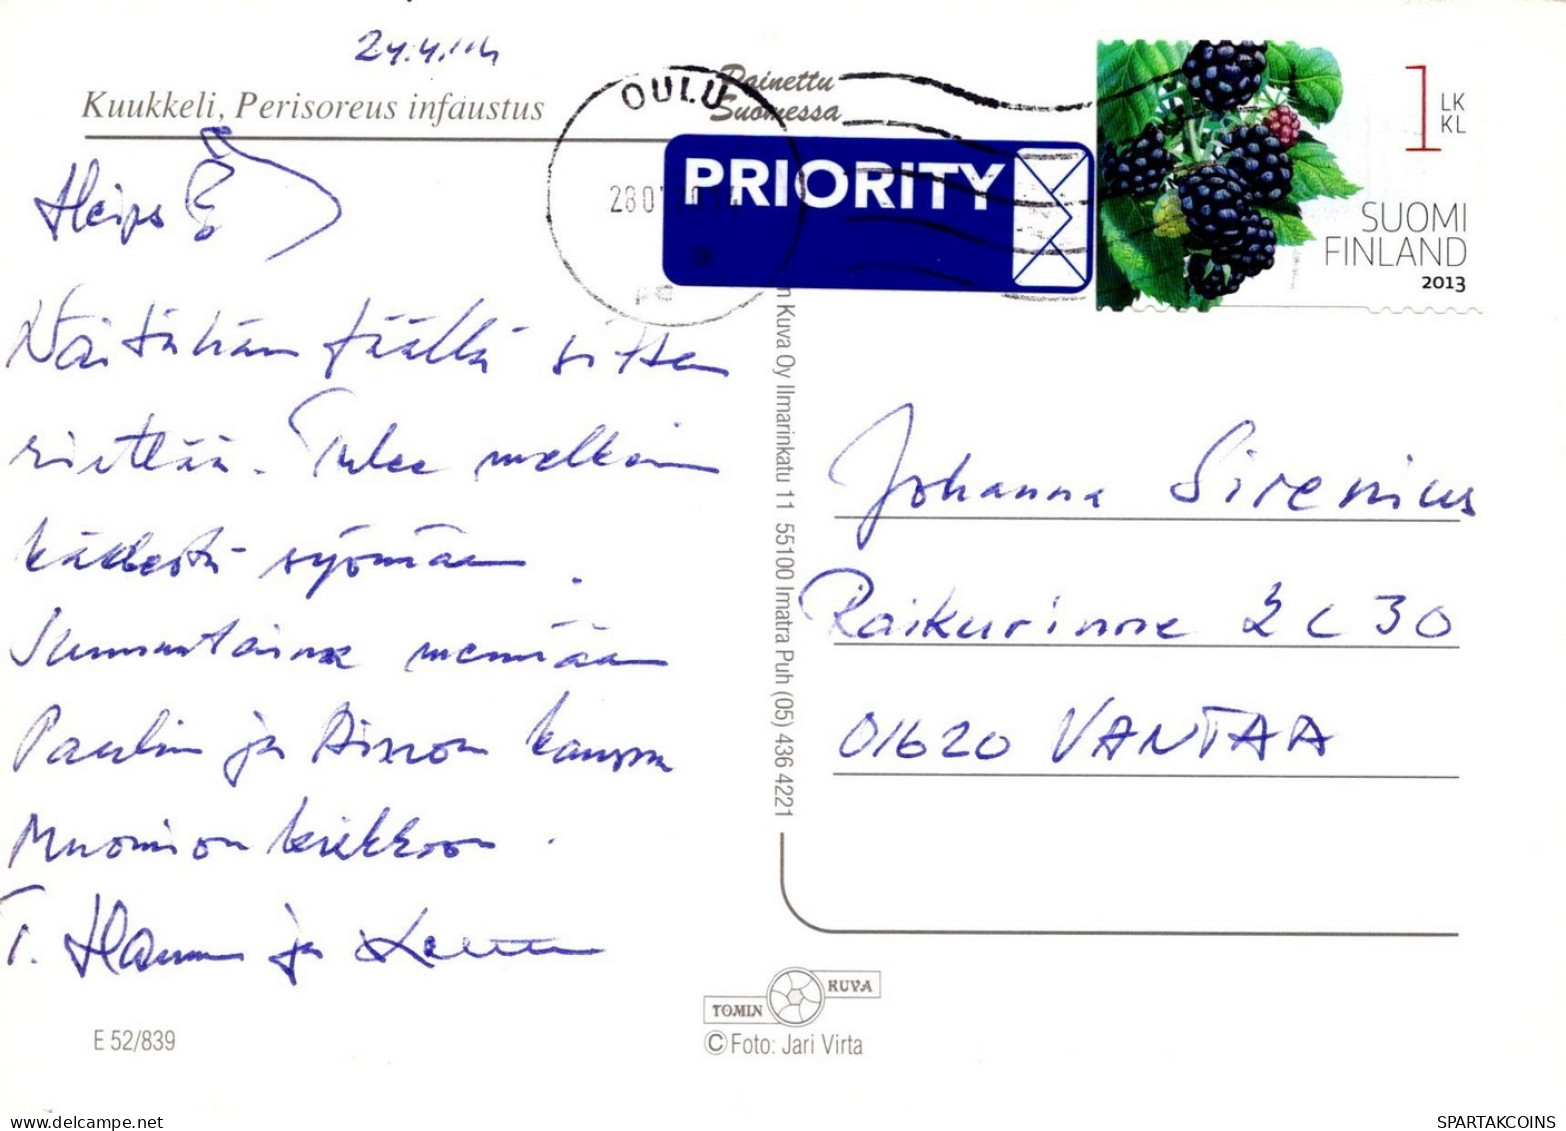 24.4.
Kuukkeli, Perisoreus infaustus
Painettu
Suomessa
OULU
PRIORITY
1 LK
KL
SUOMI
FINLAND
2013
Heips
Näitähän täällä sitten
riittää. Tulee melkein
kädestä syömään.
Sunnuntaina mennään
Paulin ja kanssa
Muonion kirkkoon.
T. Hannu ja
n Kuva Oy Ilmarinkatu 11 55100 Imatra Puh (05) 436 4221
Johanna Sirenius
Raikurinne 2 C 30
01620 VANTAA
TOMIN KUVA
© Foto: Jari Virta
E 52/839
SPARTAKCOINS
www.delcampe.net